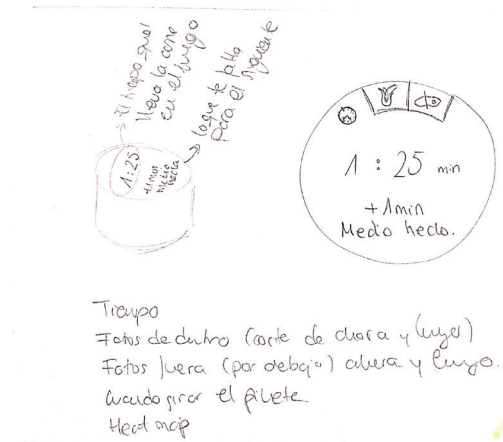 El tiempo que
lleva la carne
en el fuego
lo que te falta
para el siguiente
1:25
+1min
Medio
hecha
1 : 25 min
+1min
Medio hecho.
Tiempo
Fotos de dentro (corte de ahora y luego)
Fotos fuera (por debajo) ahora y luego.
Cuando girar el filete.
Heat map